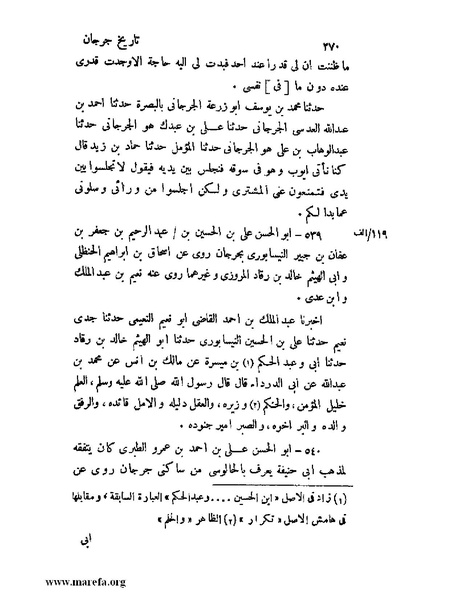 ٣٧٠ تاريخ جرجان
ما ظننت إن لى قدرا عند احد فبدت لى اليه حاجة الا وجدت قدرى
عنده دون ما [ فى ] نفسى .
حدثنا محمد بن يوسف ابو زرعة الجرجانى بالبصرة حدثنا احمد بن
عبدالله العدسى الجرجانى حدثنا على بن عبدك هو الجرجانى حدثنا
عبدالوهاب بن على هو الجرجانى حدثنا المؤمل حدثنا حماد بن زيد قال
كنا نأتى ايوب وهو فى سوقه فنجلس بين يديه فيقول لا تجلسوا بين
يدى فتمنعون عنى المشترى و لكن اجلسوا من ورائى وسلونى
عما بدا لكم .
١١٩/الف ٥٣٩ - ابو الحسن على بن الحسين بن / عبد الرحيم بن جعفر بن
عفان بن جبير النيسابورى بجرجان روى عن اسحاق بن ابراهيم الحنظلى
و ابى الهيثم خالد بن رقاد المروزى و غيرهما روى عنه نعيم بن عبد الملك
و ابن عدى .
اخبرنا عبد الملك بن احمد القاضى ابو نعيم النعيمى حدثنا جدى
نعيم حدثنا على بن الحسين النيسابورى حدثنا ابو الهيثم خالد بن رقاد
حدثنا أبى و عبد الحكم (١) بن ميسرة عن مالك بن انس عن محمد بن
عبدالله عن أبى الدرداء قال قال رسول الله صلى الله عليه وسلم، العلم
خليل المؤمن، والحكم (٢) وزيره، والعقل دليله و الامل قائده، والرفق
و الده و البر اخوه، و الصبر امير جنوده .
٥٤٠ - ابو الحسن على بن احمد بن عمرو الطبرى كان يتفقه
لمذهب ابى حنيفة يعرف بالجالوسى من ساكنى جرجان روى عن
(١) زاد فى الاصل « ابن الحسين .... وعبدالحكم » العبارة السابقة ، ومقابلها
فى هامش الاصل « تكرار » (٢) الظاهر « و الحلم »
ابى
www.marefa.org